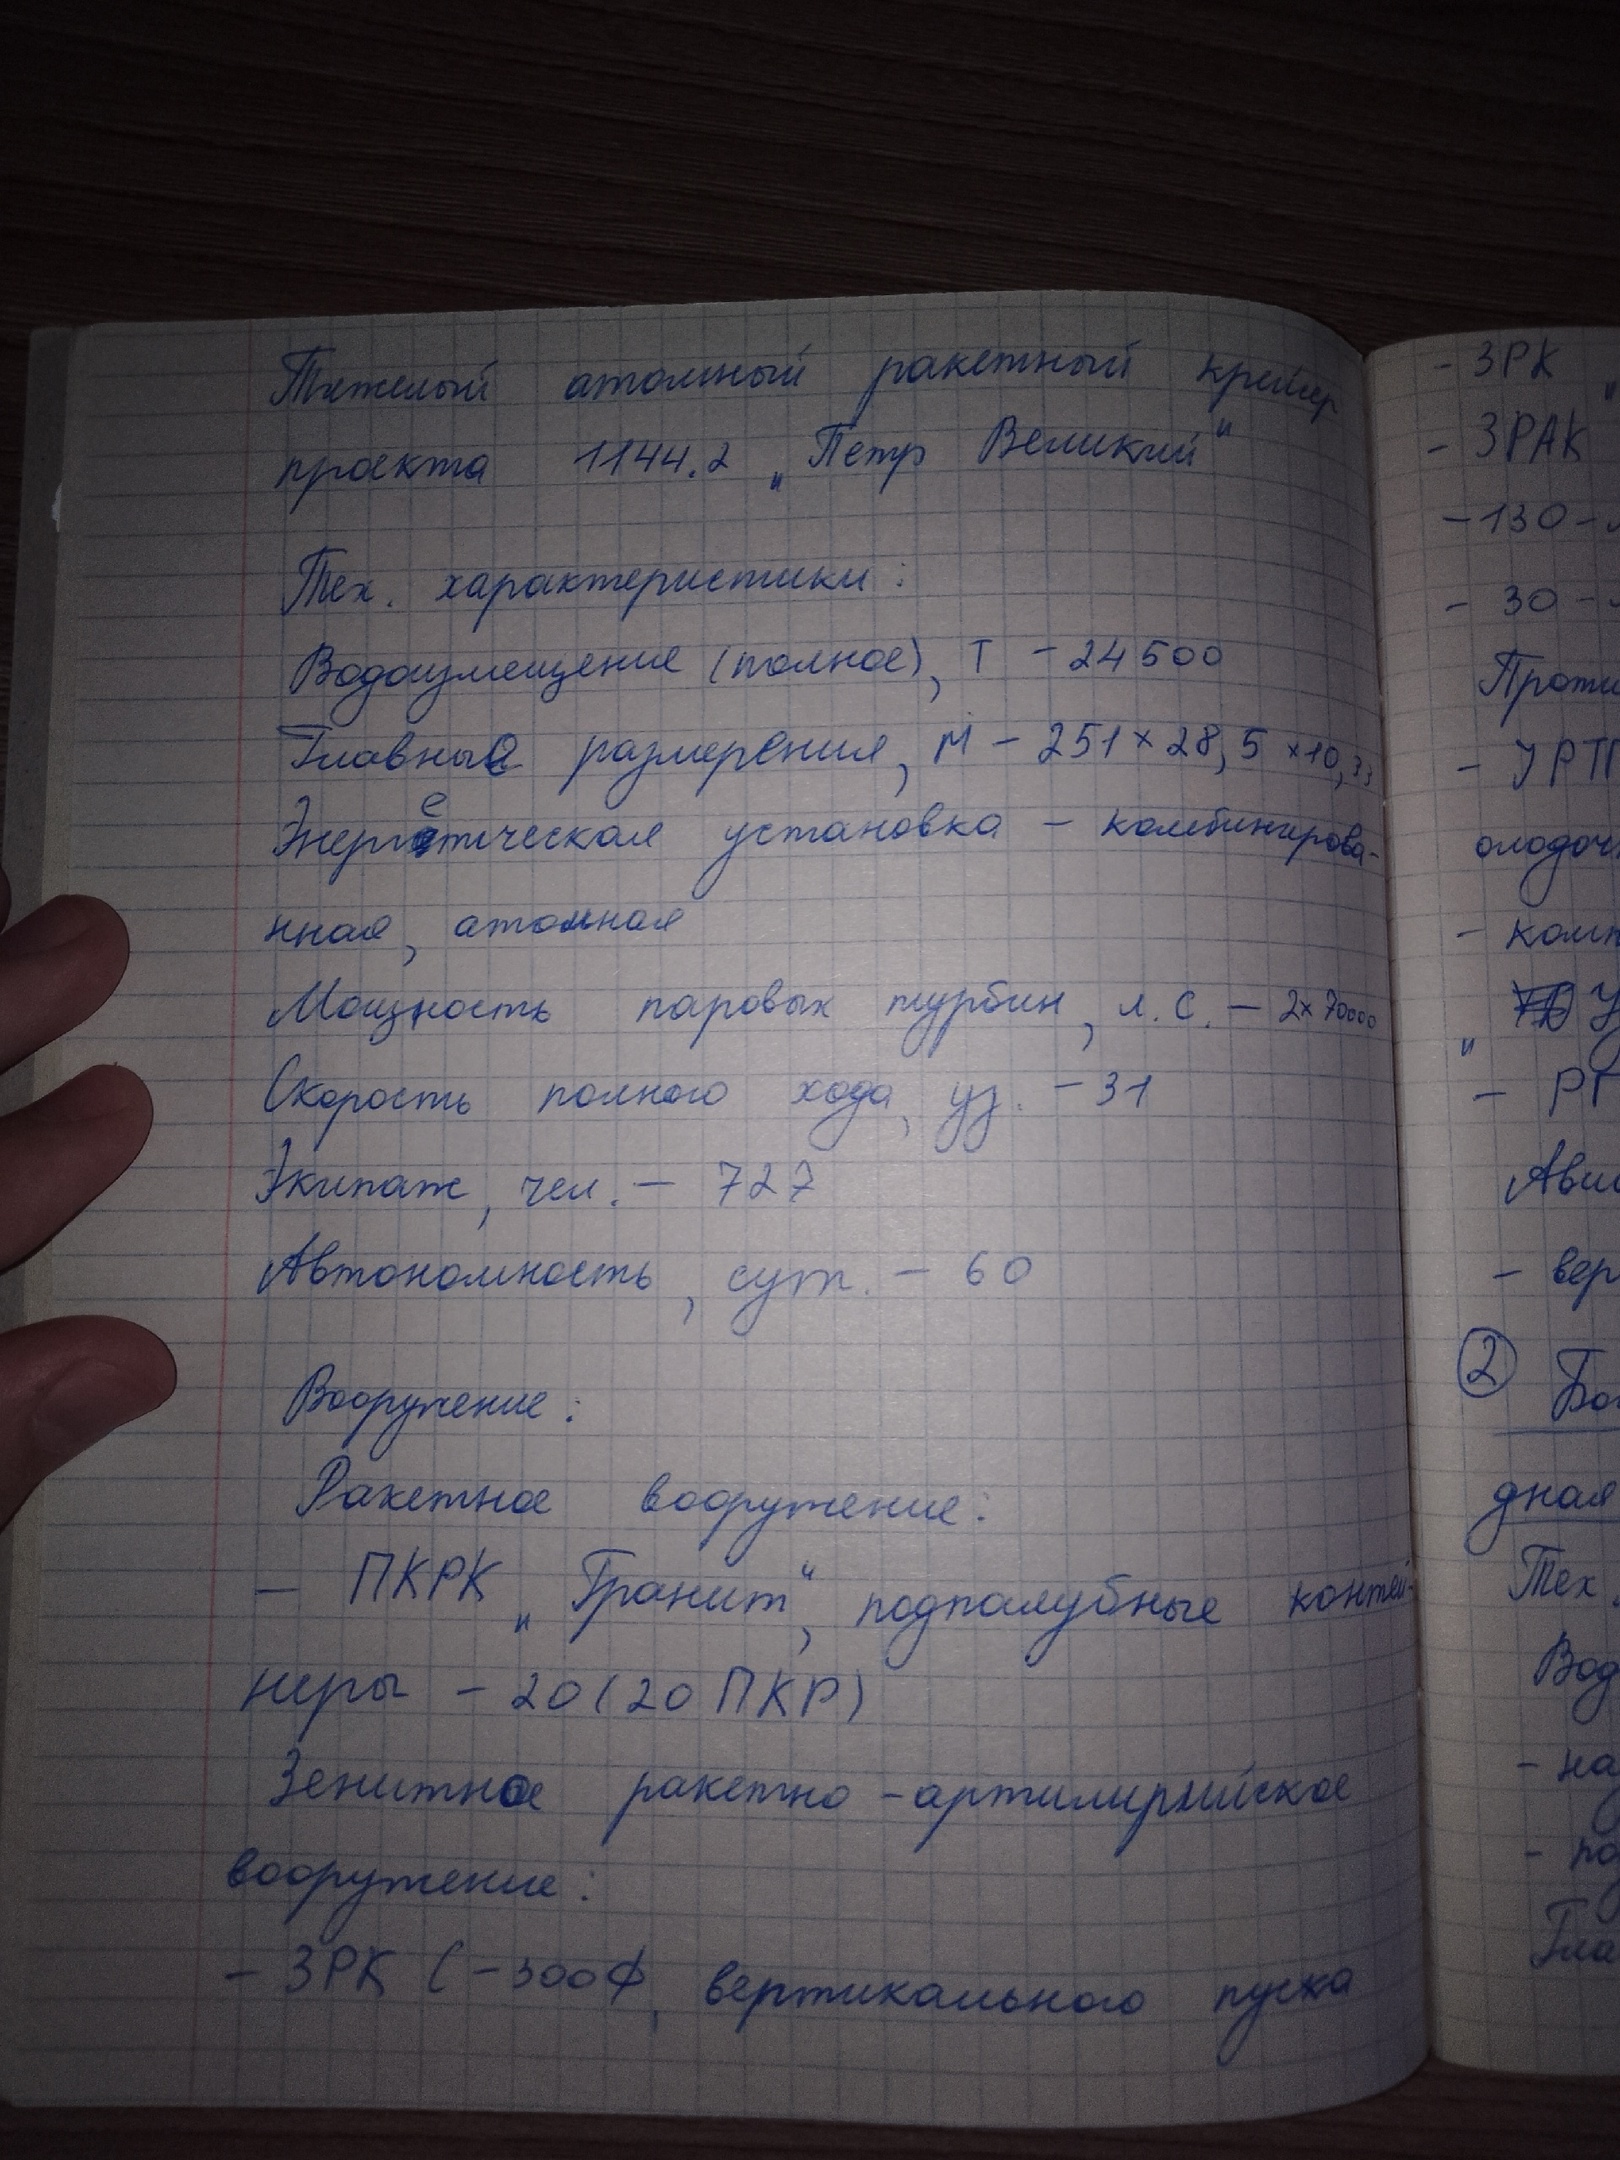 Тяжелый атомный ракетный крейсер
проекта 1144.2 „Петр Великий“
Тех. характеристики:
Водоизмещение (полное), Т - 24500
Главные размерения, М - 251 × 28,5 × 10,33
Энергетическая установка - комбинирова-
нная, атомная
Мощность паровых турбин, л.с. - 2×70000
Скорость полного хода, уз. - 31
Экипаж, чел. - 727
Автономность, сут. - 60
Вооружение:
Ракетное вооружение:
- ПКРК „Гранит“, подпалубные контей-
неры - 20 (20 ПКР)
Зенитное ракетно-артилирийское
вооружение:
- ЗРК С-300Ф, вертикального пуска
- ЗРК „
- ЗРАК
- 130 -
- 30 -
Проти
- УРП
олодоч
- комп
„ У
- РГ
Ави
- вер
② Бо
дная
Тех.
Вод
- на
- по
Гла